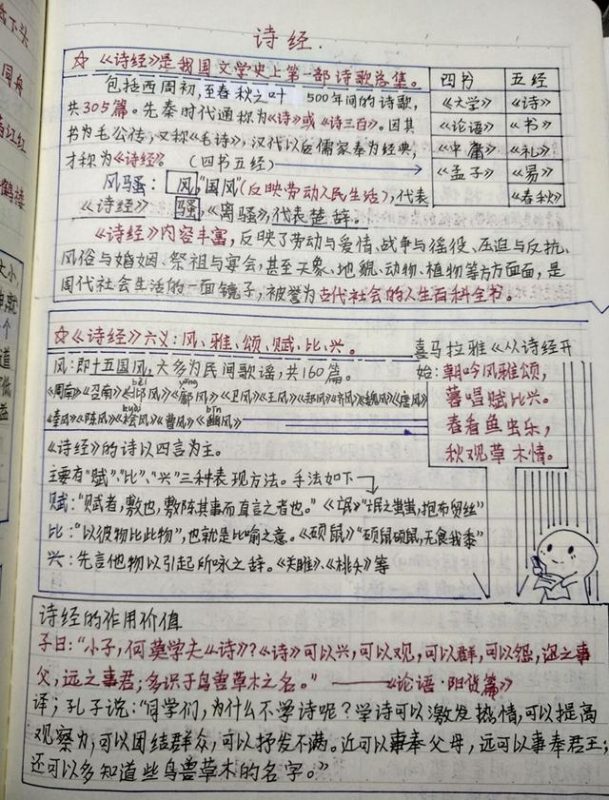 诗经.
☆《诗经》是我国文学史上第一部诗歌总集。
包括西周初,至春秋之叶 500年间的诗歌,
共305篇。先秦时代通称为《诗》或《诗三百》。因其
书为毛公传,又称《毛诗》,汉代以后儒家奉为经典,
才称为《诗经》 (四书五经)
四书 五经
《大学》 《诗》
《论语》 《书》
《中庸》 《礼》
《孟子》 《易》
《春秋》
风骚: 风,"国风"(反映劳动人民生活),代表
《诗经》 骚,《离骚》,代表楚辞。
《诗经》内容丰富,反映了劳动与爱情、战争与徭役、压迫与反抗、
风俗与婚姻、祭祖与宴会,甚至天象、地貌、动物、植物等方方面面,是
周代社会生活的一面镜子,被誉为古代社会的人生百科全书。
☆《诗经》六义:风、雅、颂、赋、比、兴。
风:即十五国风,大多为民间歌谣,共160篇。
《周南》《召南》《邶风》《鄘风》《卫风》《王风》《郑风》《齐风》《魏风》《唐风》
《秦风》《陈风》《桧风》《曹风》《豳风》
《诗经》的诗以四言为主。
主要有"赋"、"比"、"兴"三种表现方法。手法如下
赋:"赋者,敷也,敷陈其事而直言之者也。"《氓》"氓之蚩蚩,抱布贸丝"
比:"以彼物比此物",也就是比喻之意。《硕鼠》"硕鼠硕鼠,无食我黍"
兴:先言他物以引起所咏之辞。《关雎》、《桃夭》等
喜马拉雅《从诗经开
始:朝吟风雅颂,
暮唱赋比兴。
春看鱼虫乐,
秋观草木情。
诗经的作用价值
子曰:"小子,何莫学夫《诗》?《诗》可以兴,可以观,可以群,可以怨,迩之事
父,远之事君;多识于鸟兽草木之名。" ——《论语·阳货篇》
译;孔子说:"同学们,为什么不学诗呢?学诗可以激发热情,可以提高
观察力,可以团结群众,可以抒发不满。近可以事奉父母,远可以事奉君王;
还可以多知道些鸟兽草木的名字。"